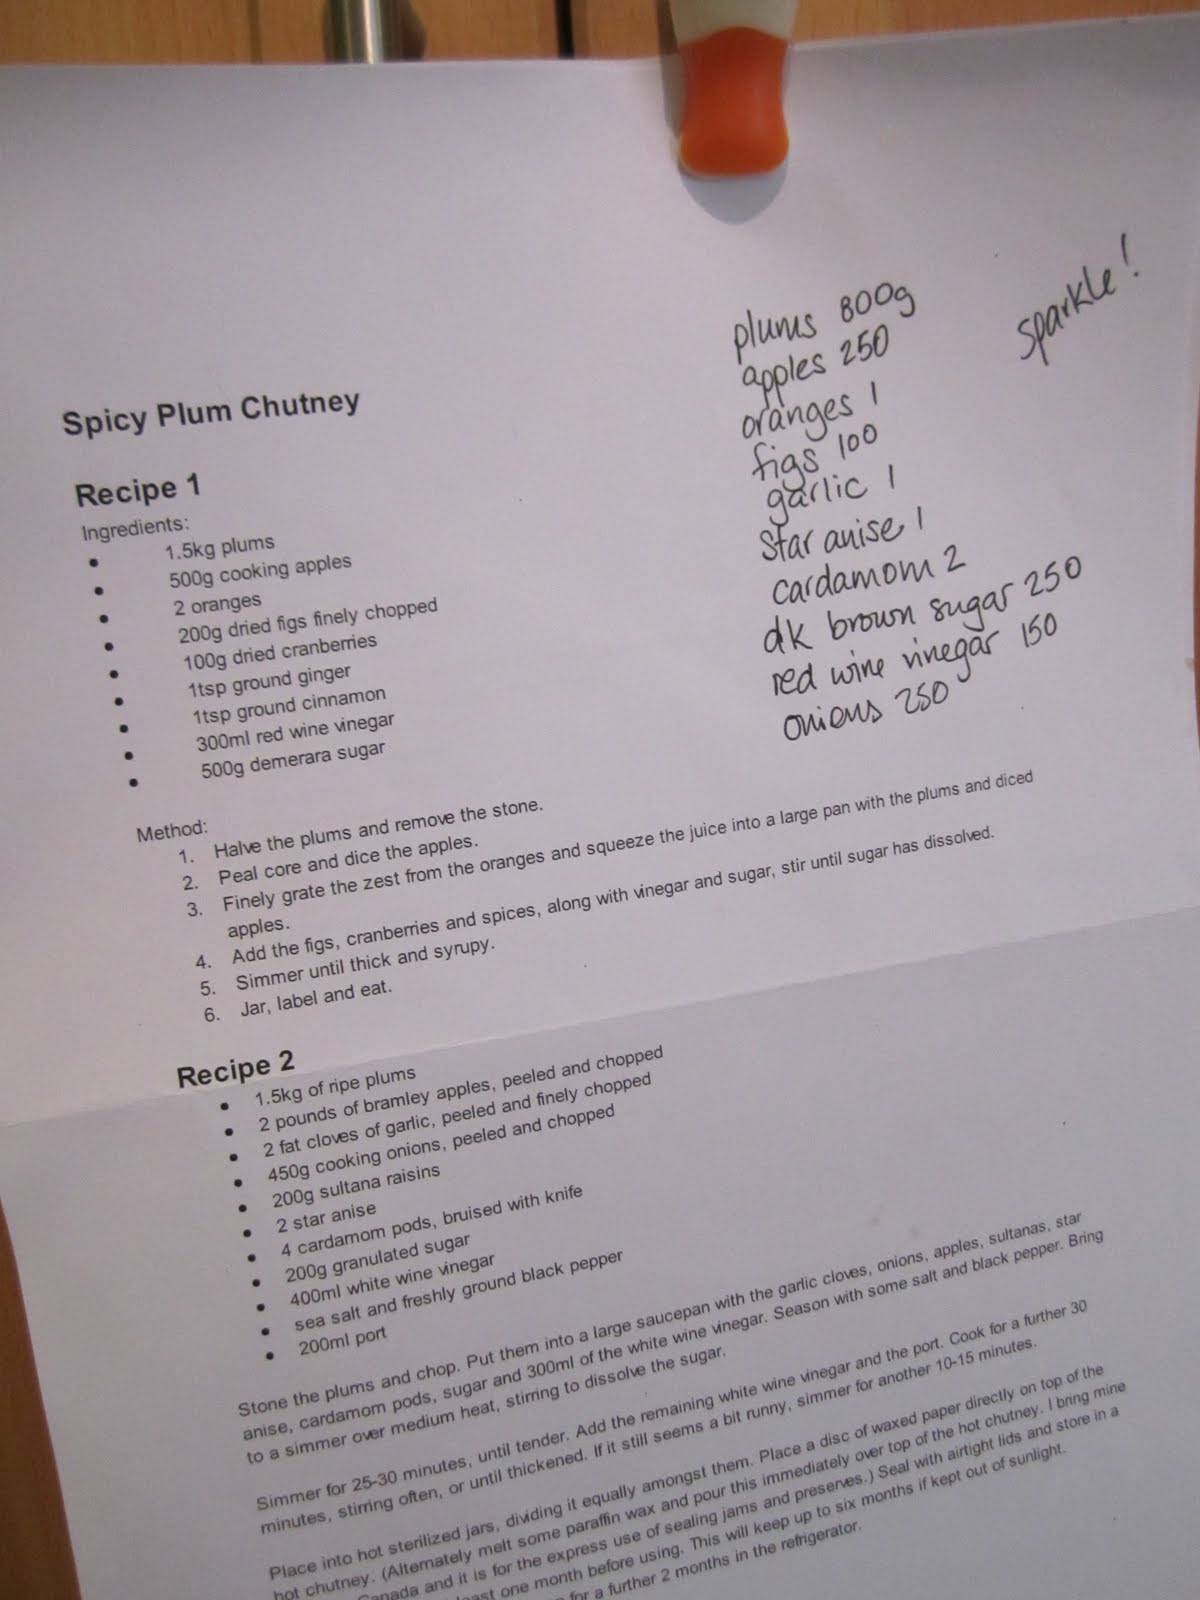 plums 800g
apples 250
oranges 1
figs 100
garlic 1
star anise 1
cardamom 2
dk brown sugar 250
red wine vinegar 150
onions 250
sparkle!
Spicy Plum Chutney
Recipe 1
Ingredients:
• 1.5kg plums
• 500g cooking apples
• 2 oranges
• 200g dried figs finely chopped
• 100g dried cranberries
• 1tsp ground ginger
• 1tsp ground cinnamon
• 300ml red wine vinegar
• 500g demerara sugar
Method:
1. Halve the plums and remove the stone.
2. Peal core and dice the apples.
3. Finely grate the zest from the oranges and squeeze the juice into a large pan with the plums and diced
apples.
4. Add the figs, cranberries and spices, along with vinegar and sugar, stir until sugar has dissolved.
5. Simmer until thick and syrupy.
6. Jar, label and eat.
Recipe 2
• 1.5kg of ripe plums
• 2 pounds of bramley apples, peeled and chopped
• 2 fat cloves of garlic, peeled and finely chopped
• 450g cooking onions, peeled and chopped
• 200g sultana raisins
• 2 star anise
• 4 cardamom pods, bruised with knife
• 200g granulated sugar
• 400ml white wine vinegar
• sea salt and freshly ground black pepper
• 200ml port
Stone the plums and chop. Put them into a large saucepan with the garlic cloves, onions, apples, sultanas, star
anise, cardamom pods, sugar and 300ml of the white wine vinegar. Season with some salt and black pepper. Bring
to a simmer over medium heat, stirring to dissolve the sugar.
Simmer for 25-30 minutes, until tender. Add the remaining white wine vinegar and the port. Cook for a further 30
minutes, stirring often, or until thickened. If it still seems a bit runny, simmer for another 10-15 minutes.
Place into hot sterilized jars, dividing it equally amongst them. Place a disc of waxed paper directly on top of the
hot chutney. (Alternately melt some paraffin wax and pour this immediately over top of the hot chutney. I bring mine
Canada and it is for the express use of sealing jams and preserves.) Seal with airtight lids and store in a
one month before using. This will keep up to six months if kept out of sunlight.
for a further 2 months in the refrigerator.